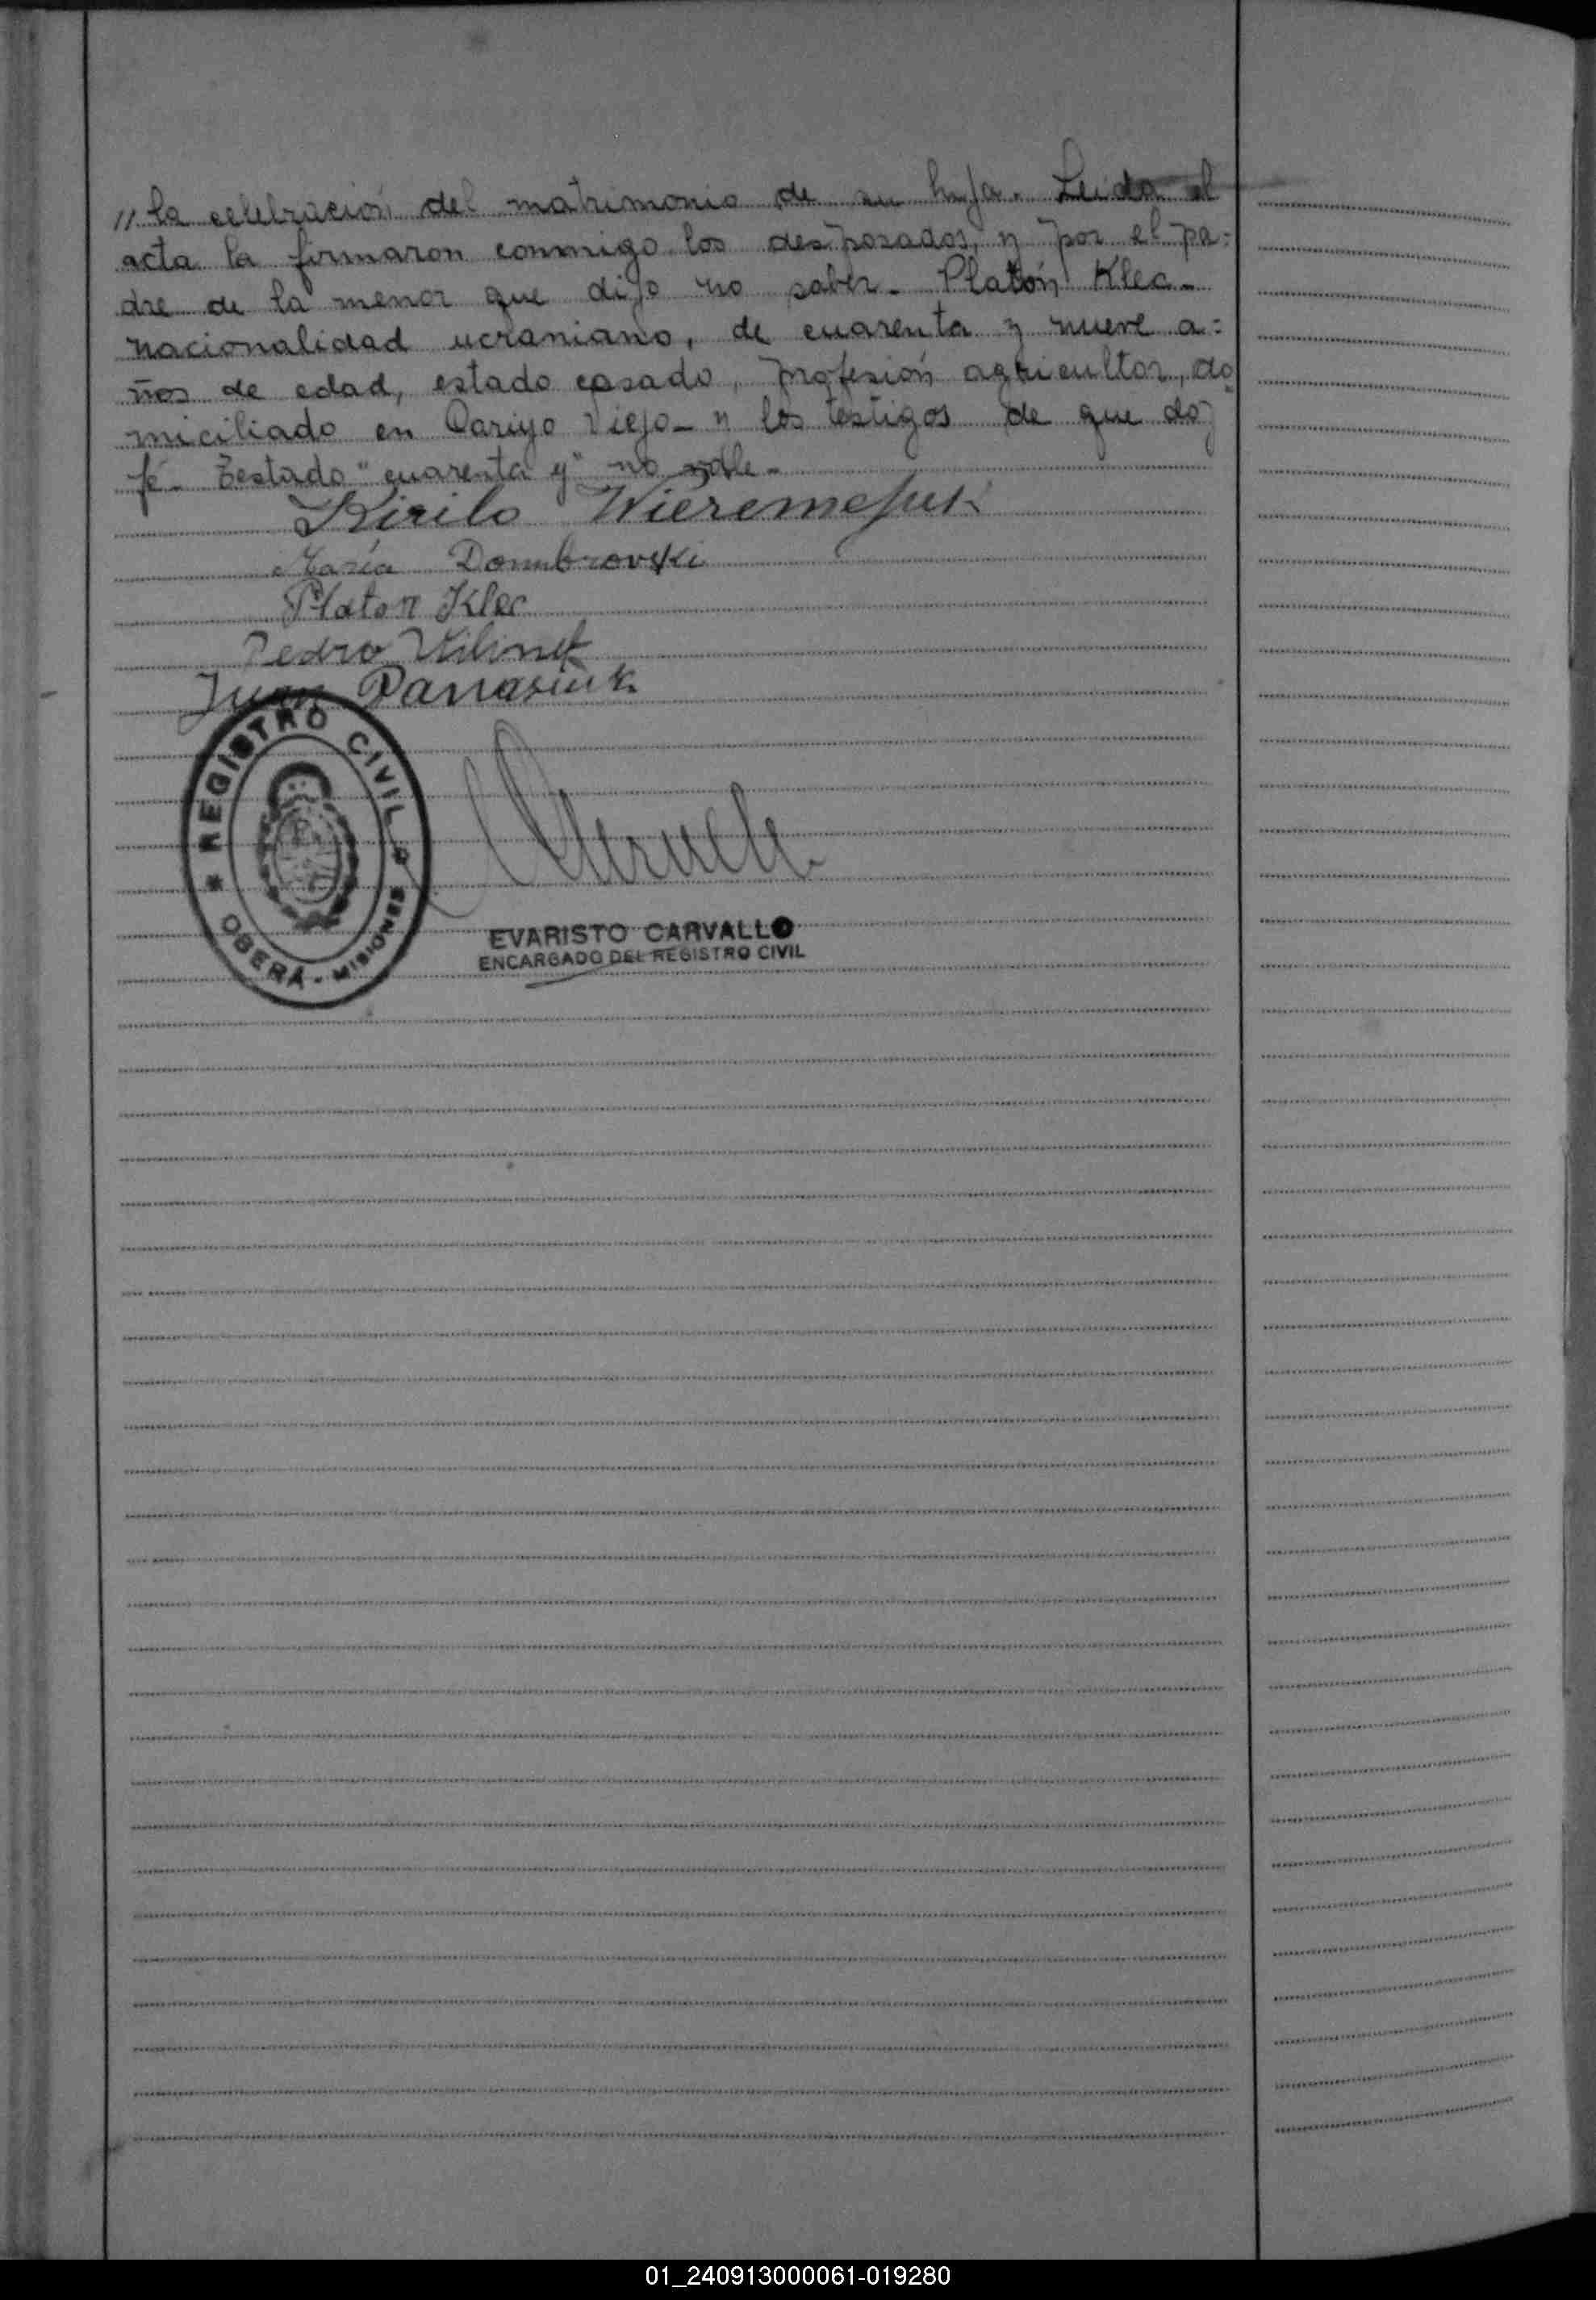 // la celebración del matrimonio de su hija. Leida el
acta la firmaron conmigo los desposados, y por el pa=
dre de la menor que dijo no saber. Platón Klec.
nacionalidad ucraniano, de cuarenta y nueve a=
ños de edad, estado casado, profesión agricultor, do
miciliado en Yeriyo Viejo y los testigos de que doy
fé. Testado "cuarenta y" no vale.
Kirilo Wieremejuk
María Dombrovski
Platon Klec
Pedro
Juan Panasiuk
REGISTRO CIVIL
OBERÁ - MISIONES
EVARISTO CARVALLO
ENCARGADO DEL REGISTRO CIVIL
01_240913000061-019280